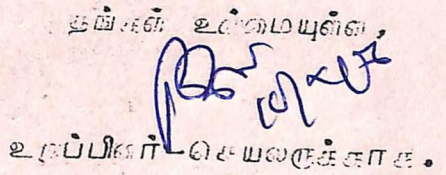 தங்கள் உண்மையுள்ள,
உறுப்பினர்-செயலருக்காக.